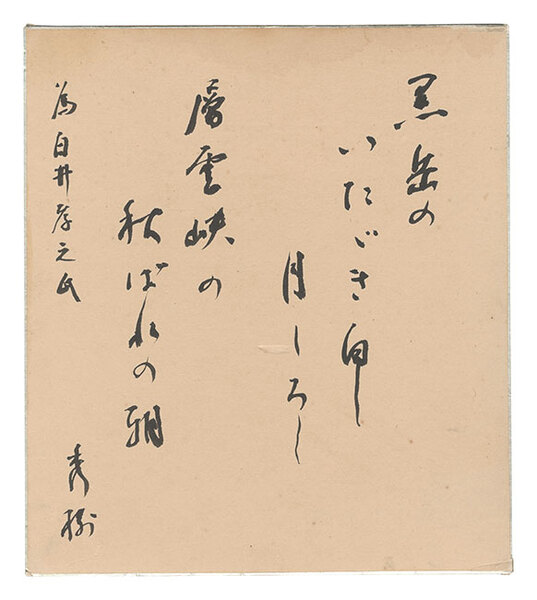 黒岳の
いたゞき白し
月しろし
層雲峡の
秋ばれの朝
為白井孝之氏
秀樹